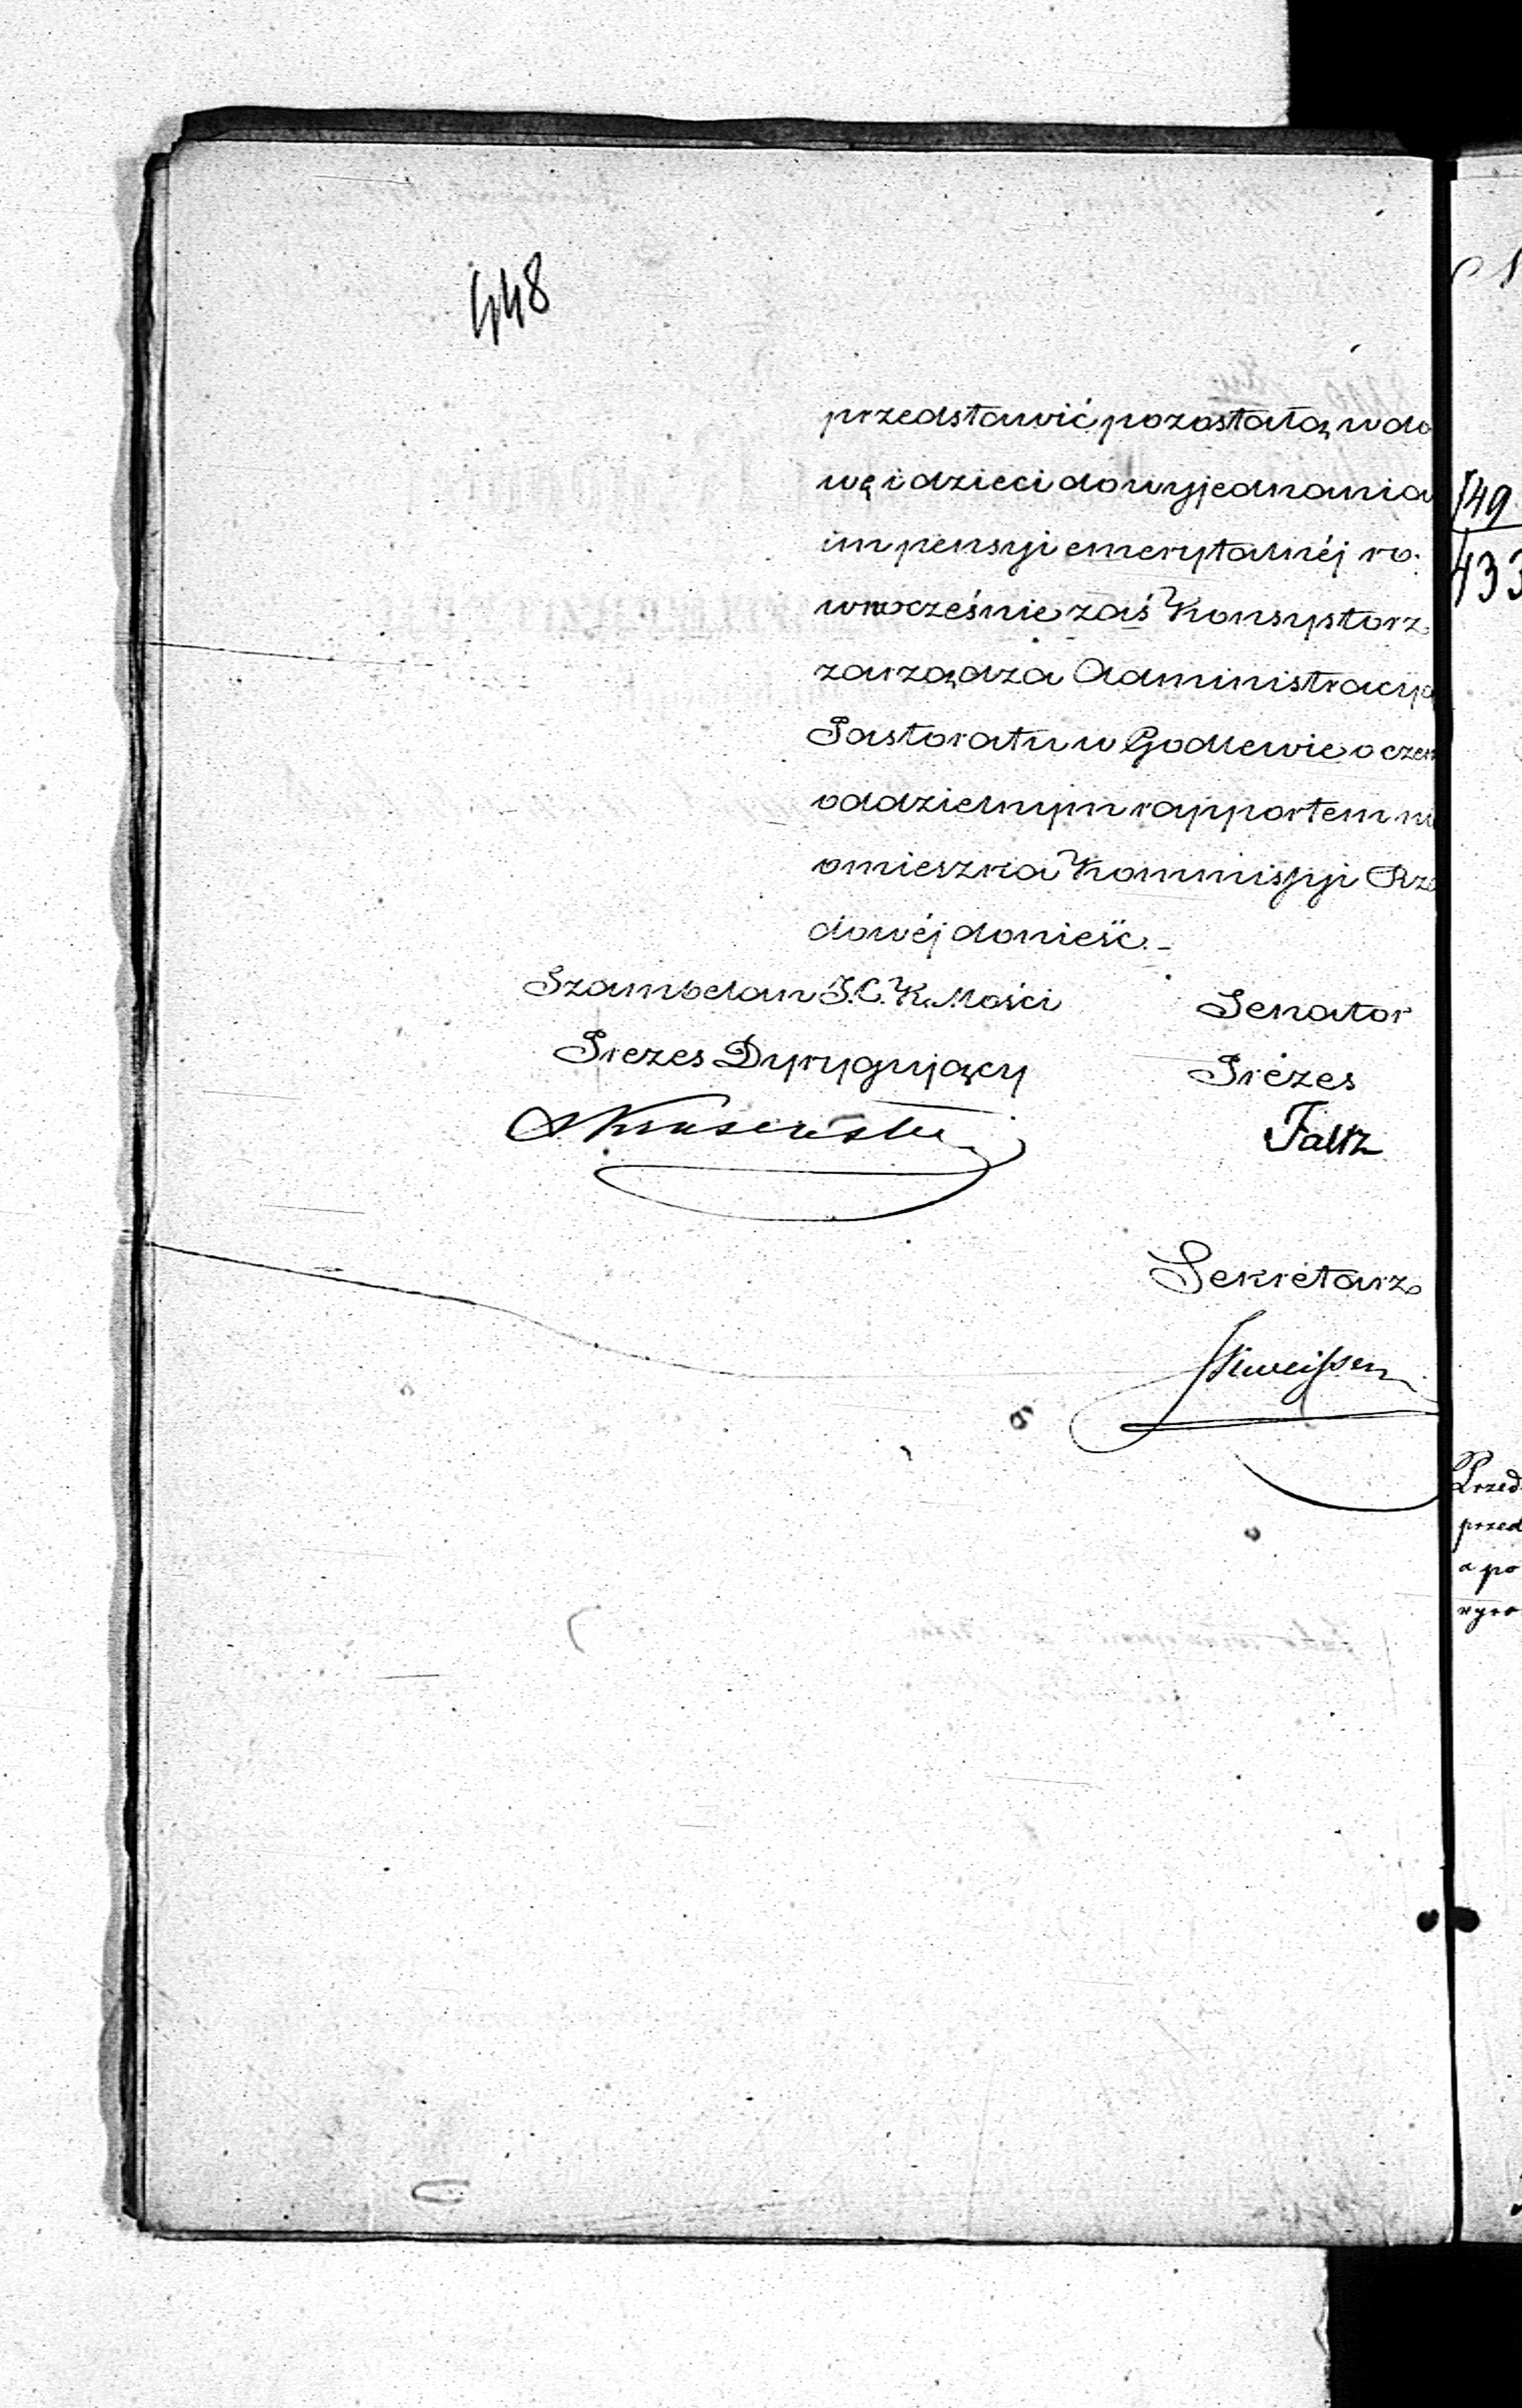 448
przedstawić pozostałą wdo
wę i dzieci do wyjednania
im pensyi emerytalnéj ró-
wnocześnie zaś Konsystorz
zarządza Administracyą
Pastoratu w Godlewie o czem
oddzielnym rapportem nie
omieszka Kommissyi Rzą
dowéj donieść.-
Szambelan J.C.K. Mości
Senator
Prezes Dyrygujący
Prezes
Faltz
Sekretarz
149
433
Przed
przed
a po